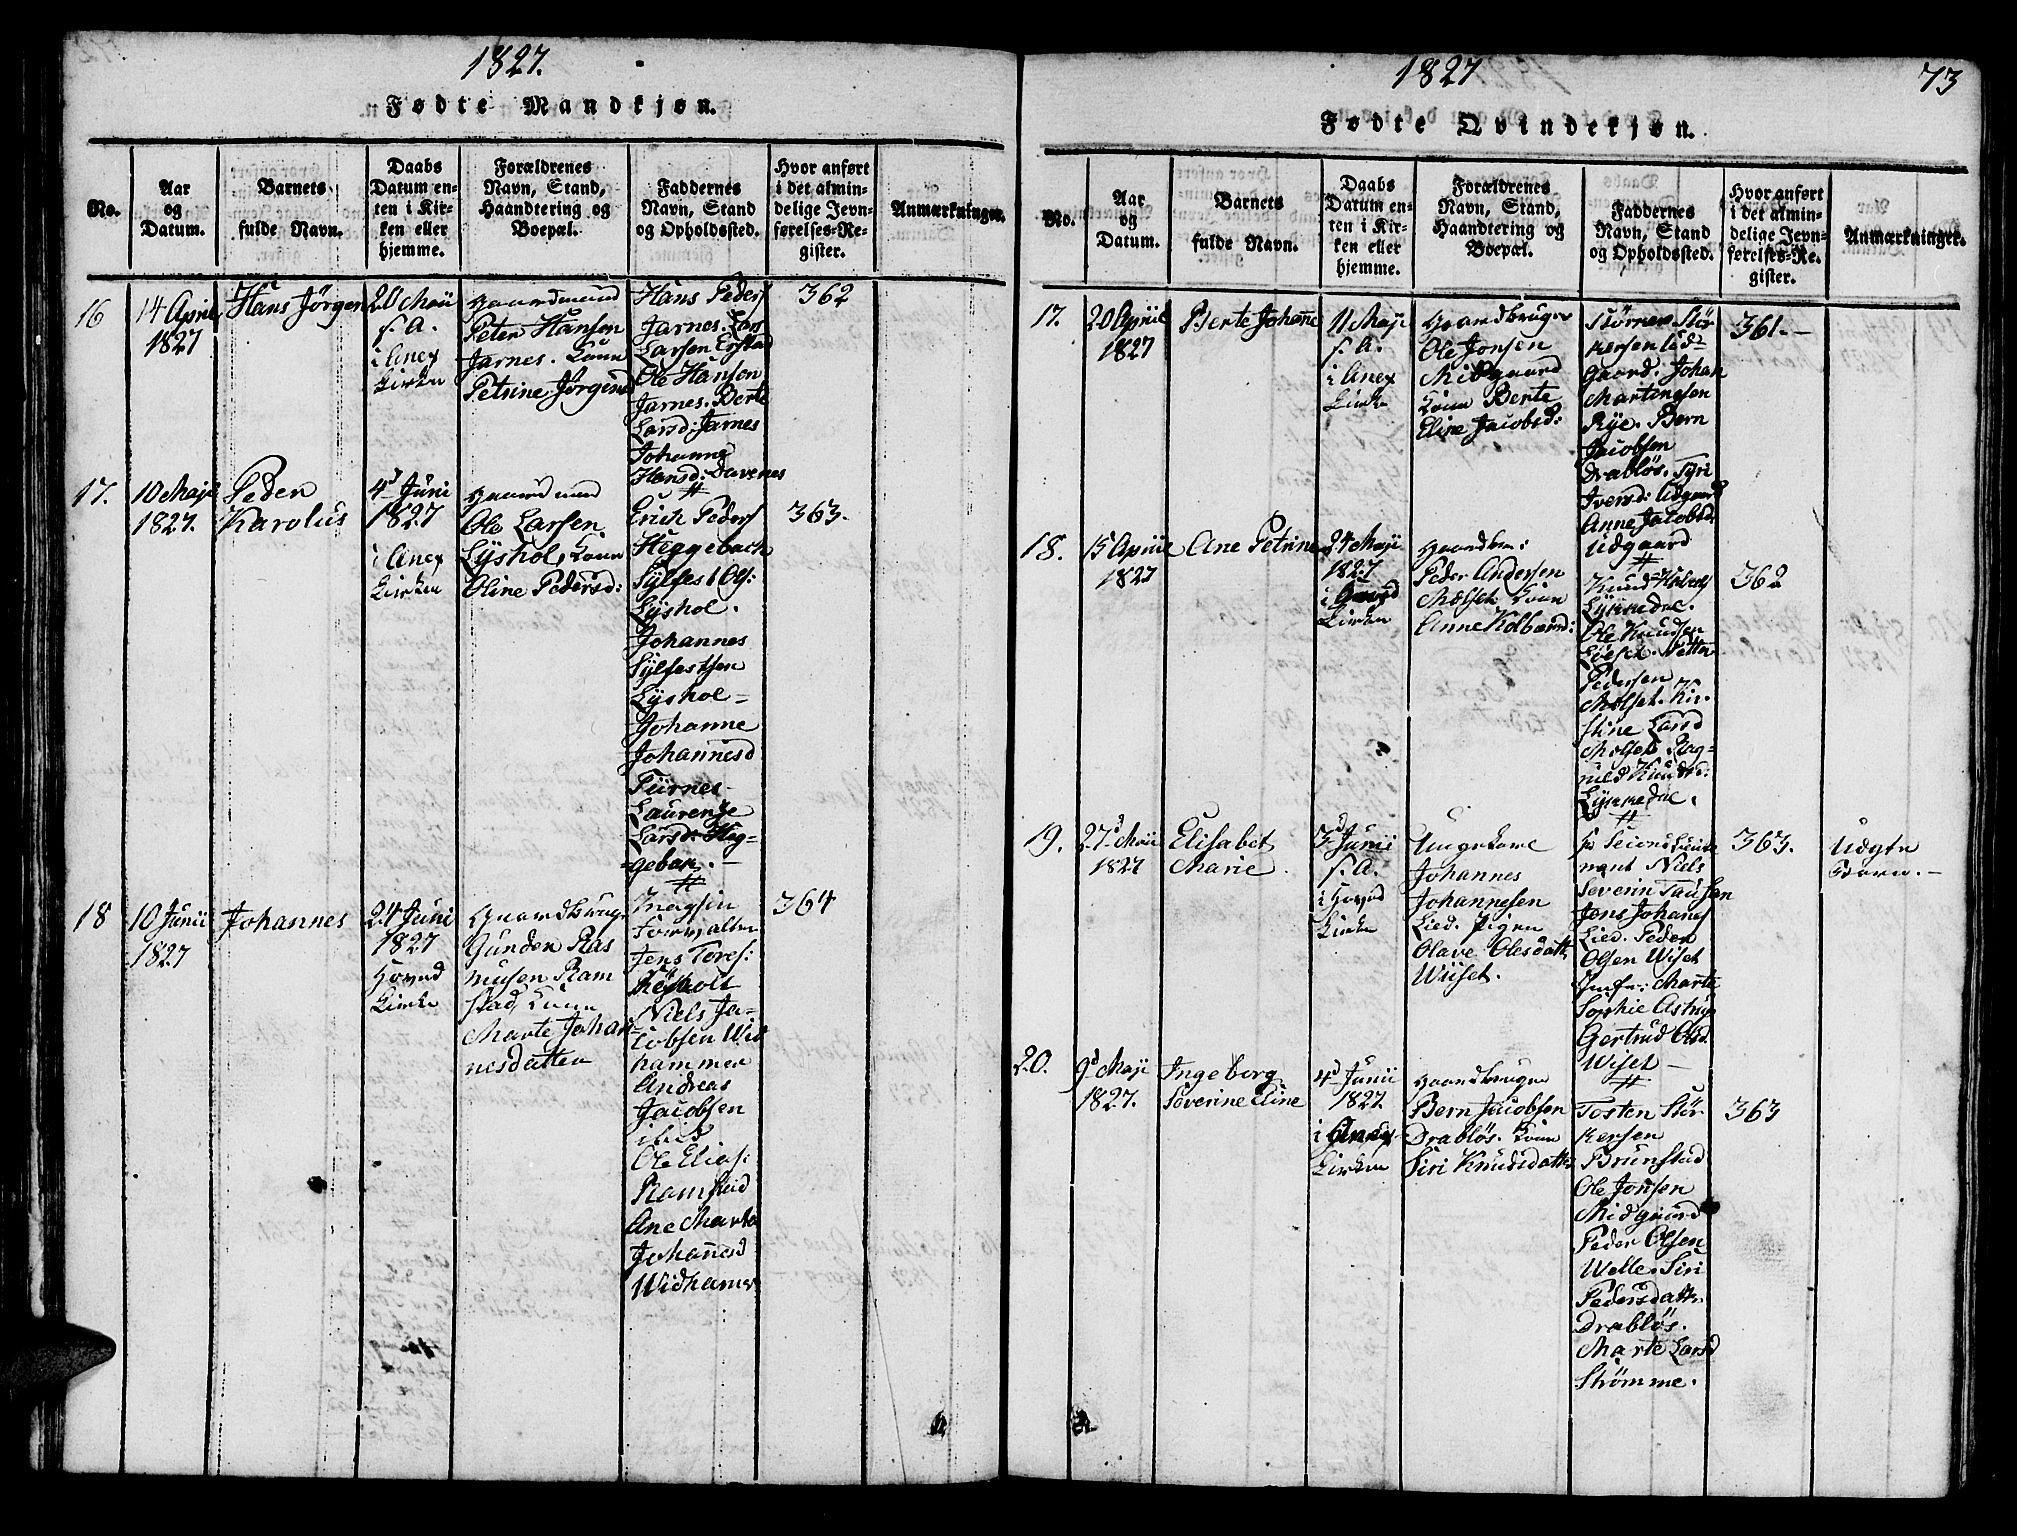 1827.
Fødte Mandkjøn.
No.
Aar
og
Datum.
Barnets
fulde Navn.
Daabs
Datum en-
ten i Kir-
ken eller
hjemme.
Forældrenes
Navn, Stand,
Haandtering og
Boepæl.
Faddernes
Navn, Stand
og Opholdssted.
Hvor anført
i det almin-
delige Jevn-
førelses-Re-
gister.
Anmærkninger.
16
14 April
1827
Hans Jørgen
20 Maii
s. A.
i Anex
Kirken
Gaardmand
Peter Hansen
Jarnes. Kone
Petrine Jørgensd
Hans Peders
Jarnes. Lars
Larsen Erstad
Ole Hansen
Jarnes. Berte
Larsd: Jarnes
Johanne
Hansd: Davenes
362
17.
10 Maji
1827.
Peder
Karolus
4d Juni
1827
i Anex
Kirken
Gaardmand
Ole Larsen
Lyshol, Kone
Oline Pedersd:
Erich Peders
Heggebach
Sylfest Ols:
Lyshol.
Johannes
Sylfestsen
Lyshol-
Johanne
Johannesd
Türnes-
Laurenze
Larsd: Heg-
=gebak.-
363.
18
10 Junii
1827
Johannes
24 Juni
1827
Hoved
Kirke
Gaardbruge
Gunder Ras
musen Ram
stad, Kone
Marte Johan
nesdatter
Magsin
Forvalter
Jens Tores:
Røsholt
Niels Ja-
cobsen Wid
hammer
Andreas
Jacobsen
ibid
Ole Elias:
Ramstad
Ane Marte
Johannesd
Widhamer
364
1827
73
Fødte Qvindekjøn.
No.
Aar
og
Datum.
Barnets
fulde Navn.
Daabs
Datum en-
ten i Kir-
ken eller
hjemme.
Forældrenes
Navn, Stand,
Haandtering og
Boepæl.
Faddernes
Navn, Stand
og Opholdssted.
Hvor anført
i det almin-
delige Jevn-
førelses-Re-
gister.
Anmærkninger.
17.
20 April
1827
Berte Johanne
11 Maji
s. A.
i Anex
Kirke
Gaardbruger
Ole Jonsen
Midgaard
Kone Berte
Eline Jacobsd:
Størker Stør
kersen Ud-
gaard. Johan
Martinusen
Rye. Bern
Jacobsen
Drabløs. Syri
Iversd: Udgaard
Anne Jacobsd
Udgaard
361.-
18.
15 April
1827
Ane Petrine
24 Maji
1827
i Hoved
Kirken
Gaardbr:
Peder Andersen
Molset Kone
Anne Kolbæns:
Knud
Lykkedal.
Ole Knudsen
Petter
Pedersen
Molset. Kir-
stine Larsd
Molset. Rag-
nild Knudsd:
Lykkedal.
362
19.
27d Maii
1827
Elisabet
Marie.
3d Junii
s. A.
i Hoved
Kirke
Ungekarl
Johannes
Johannesen
Lied. Pigen
Olave Olesdatt
Wiiset.
Lieut
nant Niels
Severin
Jens Johanes
Lied. Peder
Olsen Wiset
Jmfr: Marte
Sophie Astrup
Gertrud Olsd.
Wiset-
363.
Udgte
Barn.-
20.
9d Maji
1827.
Ingeborg
Severine Eline
4d Junii
1827
i Anex-
Kirken
Gaardbruger
Bern Jacobsen
Drabløs. Kone
Siri Knudsdatter
Tosten Stør
kersen
Brunstad
Ole Jonsen
Midgaard
Peder Olsen
Welle. Siri
Pedersdatter
Drabløs.
Marte Larsd
Strømme.
363